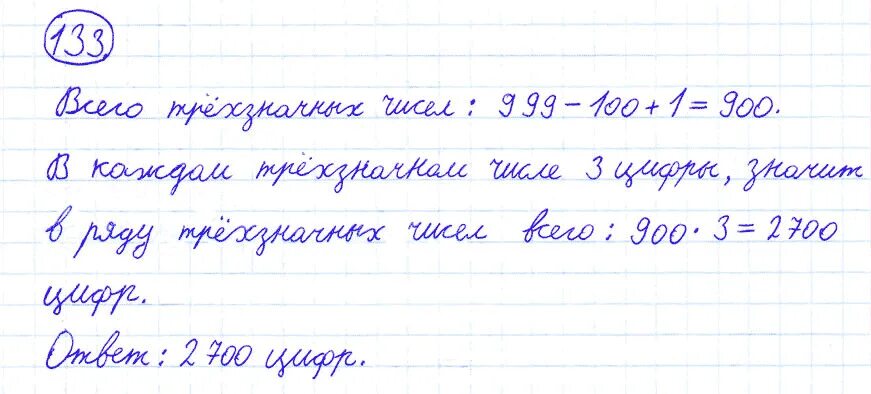 133
Всего трёхзначных чисел: 999-100+1=900.
В каждом трёхзначном числе 3 цифры, значит
в ряду трёхзначных чисел всего: 900·3=2700
цифр.
Ответ: 2700 цифр.